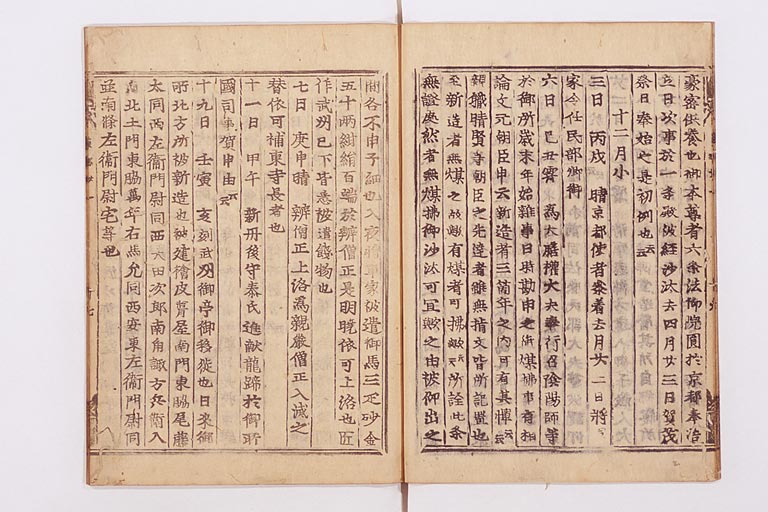 豪密供養也御本尊者六条法印院圓於京都奉治
立日次事於一条殿被経沙汰去四月廿三日賀茂
祭日奉始之是初例也云云
十二月小
三日 丙戌 晴京都使者参着去月廿二日将
家令任民部卿御
六日 己丑 雲 為大膳権大夫奉行召陰陽師等
於御所歳末年始雑事日時勘申之御煤拂事有相
論文元朝臣申云新造者三箇年之内可有其憚云云
親職晴賢等朝臣之先達者雖無指文皆所記置也
至新造者無煤之故歟有煤者可拂歟云云所詮此条
無證処然者無煤拂御沙汰可宜歟之由被仰出之
間各不申子細也入夜将軍家被遣御馬三疋砂金
五十両紺絹百端於辨僧正是明暁依可上洛也匠
作武州已下皆悉被遣餞物也
七日 庚申晴 辨僧正上洛為親厳僧正入滅之
替依可補東寺長者也
十一日 甲午 新丹後守泰氏進献龍蹄於御所
國司事賀申由云云
十九日 壬寅 亥刻武州御亭御移徙也日来御
所北方所被新造也被建檜皮葺屋南門東脇尾藤
太同西左衛門尉同西大田次郎南角諏方兵衛入
道北土門東脇萬年右馬允同西安東左衛門尉同
並南條左衛門尉宅等也